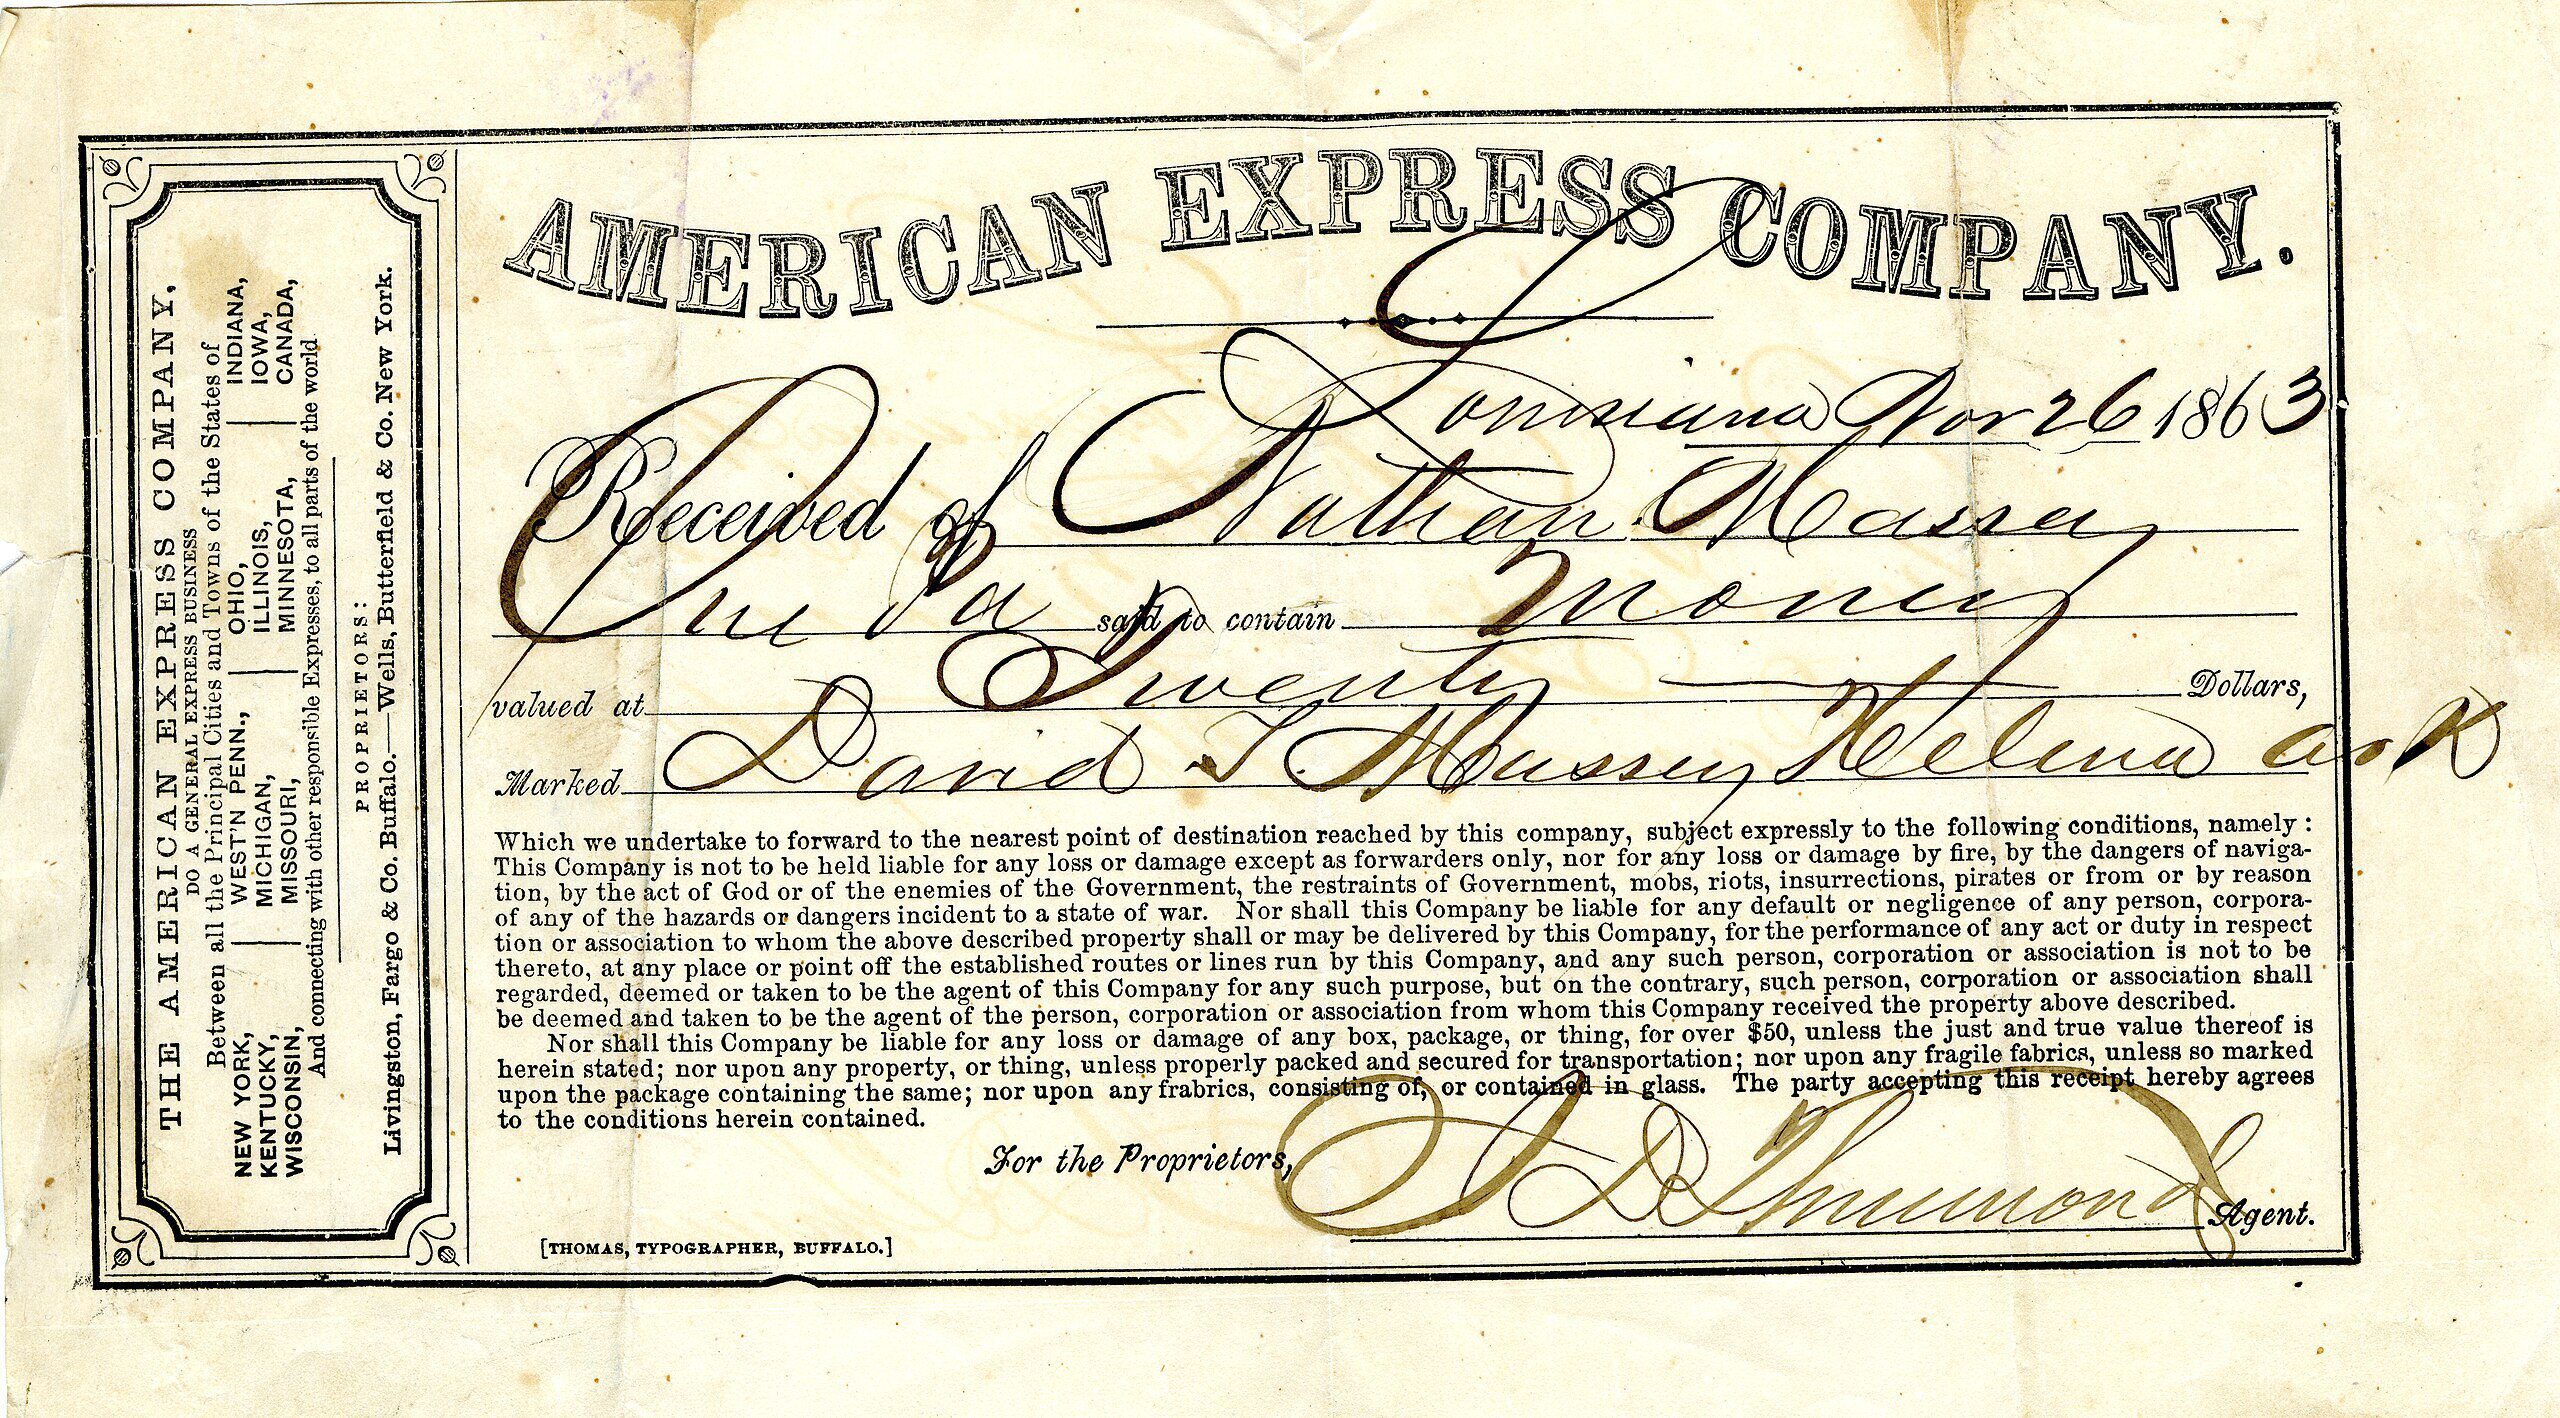 THE AMERICAN EXPRESS COMPANY,
DO A GENERAL EXPRESS BUSINESS
Between all the Principal Cities and Towns of the States of
NEW YORK, WEST'N PENN., OHIO, INDIANA,
KENTUCKY, MICHIGAN, ILLINOIS, IOWA,
WISCONSIN, MISSOURI, MINNESOTA, CANADA,
And connecting with other responsible Expresses, to all parts of the world
PROPRIETORS:
Livingston, Fargo & Co. Buffalo.—Wells, Butterfield & Co. New York.
AMERICAN EXPRESS COMPANY.
Louisiana Nov 26 1863
Received of Nathan Massey
One said to contain Money
valued at Twenty Dollars,
Marked David T Massey Helena ark
Which we undertake to forward to the nearest point of destination reached by this company, subject expressly to the following conditions, namely:
This Company is not to be held liable for any loss or damage except as forwarders only, nor for any loss or damage by fire, by the dangers of naviga-
tion, by the act of God or of the enemies of the Government, the restraints of Government, mobs, riots, insurrections, pirates or from or by reason
of any of the hazards or dangers incident to a state of war. Nor shall this Company be liable for any default or negligence of any person, corpora-
tion or association to whom the above described property shall or may be delivered by this Company, for the performance of any act or duty in respect
thereto, at any place or point off the established routes or lines run by this Company, and any such person, corporation or association is not to be
regarded, deemed or taken to be the agent of this Company for any such purpose, but on the contrary, such person, corporation or association shall
be deemed and taken to be the agent of the person, corporation or association from whom this Company received the property above described.
Nor shall this Company be liable for any loss or damage of any box, package, or thing, for over $50, unless the just and true value thereof is
herein stated; nor upon any property, or thing, unless properly packed and secured for transportation; nor upon any fragile fabrics, unless so marked
upon the package containing the same; nor upon any frabrics, consisting of, or contained in glass. The party accepting this receipt hereby agrees
to the conditions herein contained.
For the Proprietors, Agent.
[THOMAS, TYPOGRAPHER, BUFFALO.]